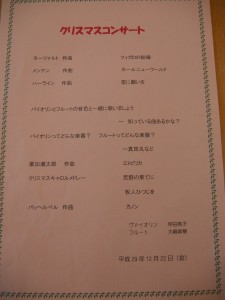 クリスマスコンサート
モーツァルト 作曲
メンケン 作曲 ホールニューワールド
ハーライン 作曲 星に願いを
バイオリンとフルートの音色と一緒に歌いましょう
― 知っている曲あるかな?
バイオリンってどんな楽器? フルートってどんな楽器?
葉加瀬太郎 作曲 エトピリカ
クリスマスキャロルメドレー 荒野の果てに
牧人ひつじを
パッヘルベル 作曲 カノン
ヴァイオリン
フルート
平成29年12月22日(金)